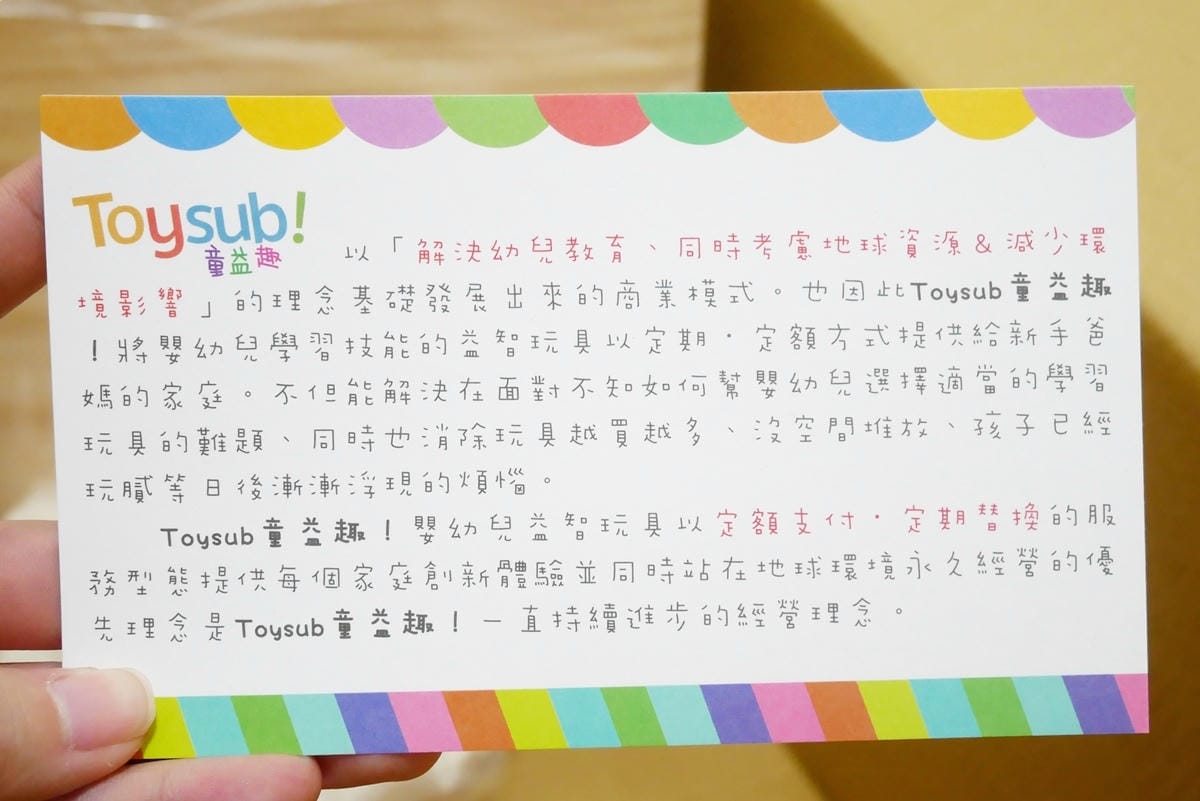 Toysub!
童益趣
以「解決幼兒教育、同時考慮地球資源&減少環
境影響」的理念基礎發展出來的商業模式。也因此Toysub童益趣
！將嬰幼兒學習技能的益智玩具以定期・定額方式提供給新手爸
媽的家庭。不但能解決在面對不知如何幫嬰幼兒選擇適當的學習
玩具的難題、同時也消除玩具越買越多、沒空間堆放、孩子已經
玩膩等日後漸漸浮現的煩惱。
Toysub童益趣！嬰幼兒益智玩具以定額支付・定期替換的服
務型態提供每個家庭創新體驗並同時站在地球環境永久經營的優
先理念是Toysub童益趣！一直持續進步的經營理念。